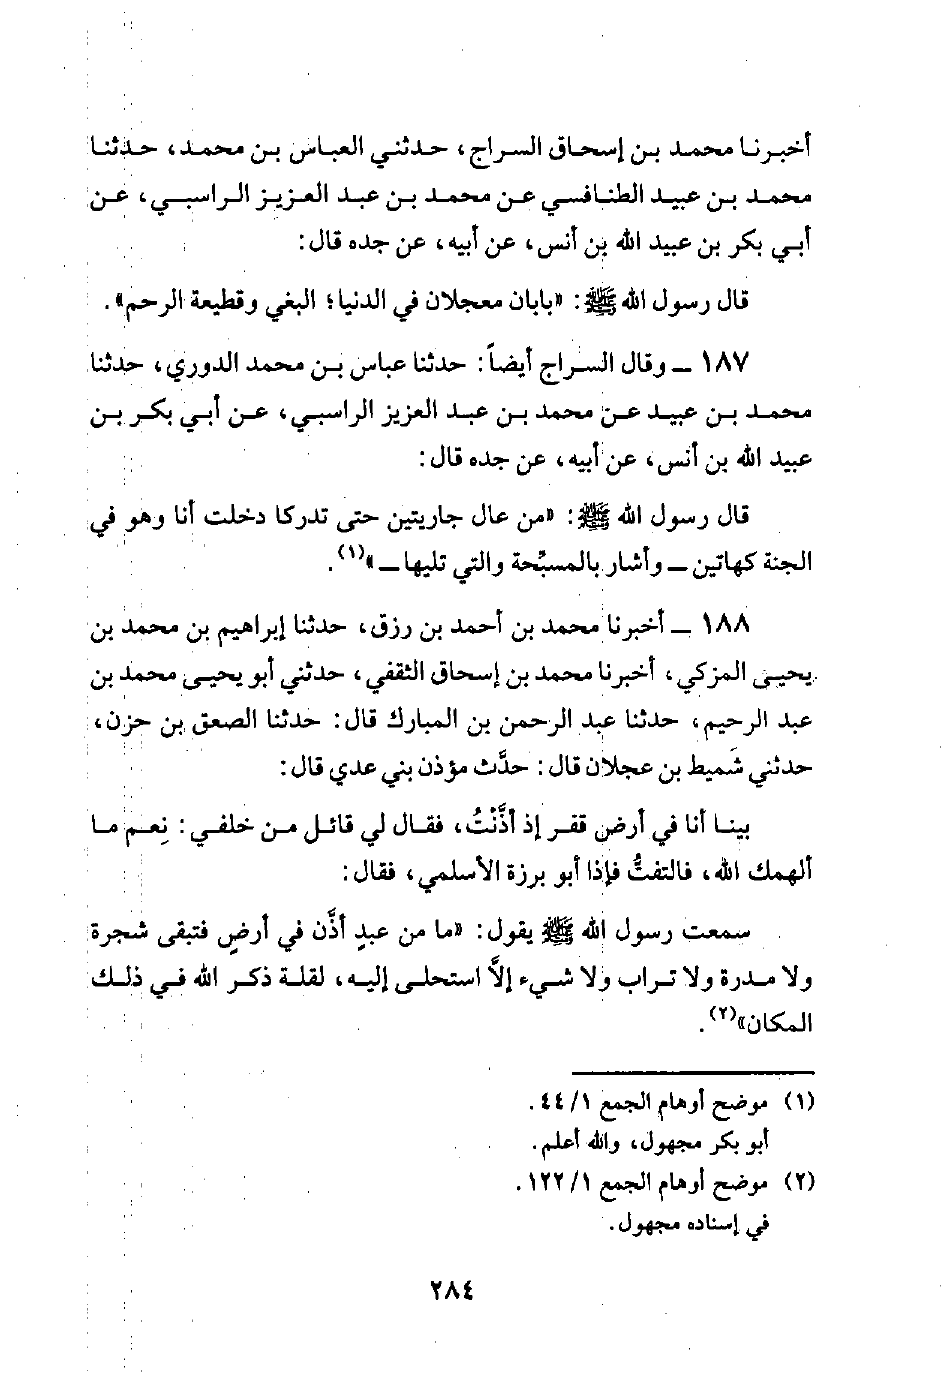 أخبرنا محمد بن إسحاق السراج، حدثني العباس بن محمد، حدثنا
محمد بن عبيد الطنافسي عن محمد بن عبد العزيز الراسبي، عن
أبي بكر بن عبيد الله بن أنس، عن أبيه، عن جده قال:
قال رسول الله ﷺ: «بابان معجلان في الدنيا؛ البغي وقطيعة الرحم».
١٨٧ ــ وقال السراج أيضاً: حدثنا عباس بن محمد الدوري، حدثنا
محمد بن عبيد عن محمد بن عبد العزيز الراسبي، عن أبي بكر بن
عبيد الله بن أنس، عن أبيه، عن جده قال:
قال رسول الله ﷺ: «من عال جاريتين حتى تدركا دخلت أنا وهو في
الجنة كهاتين ــ وأشار بالمسبِّحة والتي تليها ــ»(١).
١٨٨ ــ أخبرنا محمد بن أحمد بن رزق، حدثنا إبراهيم بن محمد بن
يحيى المزكي، أخبرنا محمد بن إسحاق الثقفي، حدثني أبو يحيى محمد بن
عبد الرحيم، حدثنا عبد الرحمن بن المبارك قال: حدثنا الصعق بن حزن،
حدثني شَميط بن عجلان قال: حدَّث مؤذن بني عدي قال:
بينا أنا في أرض قفر إذ أذَّنْتُ، فقال لي قائل من خلفي: نِعم ما
ألهمك الله، فالتفتُّ فإذا أبو برزة الأسلمي، فقال:
سمعت رسول الله ﷺ يقول: «ما من عبدٍ أذَّن في أرضٍ فتبقى شجرة
ولا مدرة ولا تراب ولا شيء إلاَّ استحلى إليه، لقلة ذكر الله في ذلك
المكان»(٢).
(١) موضح أوهام الجمع ١/ ٤٤.
أبو بكر مجهول، والله أعلم.
(٢) موضح أوهام الجمع ١/ ١٢٢.
في إسناده مجهول.
٢٨٤